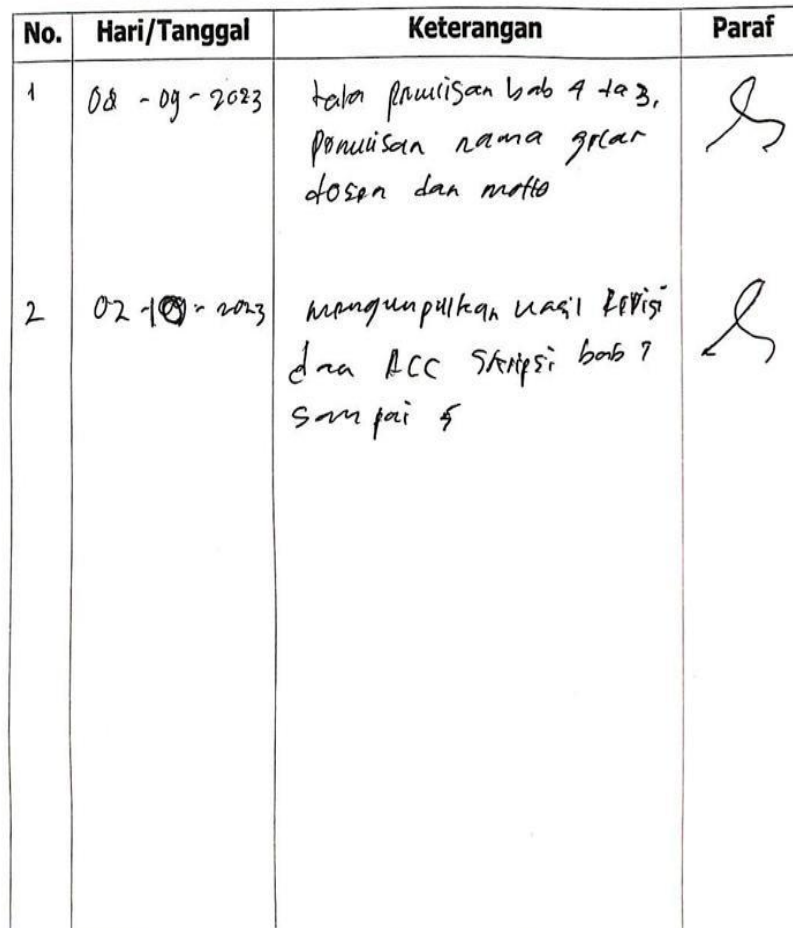 No. Hari/Tanggal Keterangan Paraf
1 08 - 09 - 2023 tata penulisan bab 4
penulisan nama gelar
dosen dan motto
2 02 - 2023 mengunpulkan hasil Revisi
dan ACC Skripsi bab
sampai 5